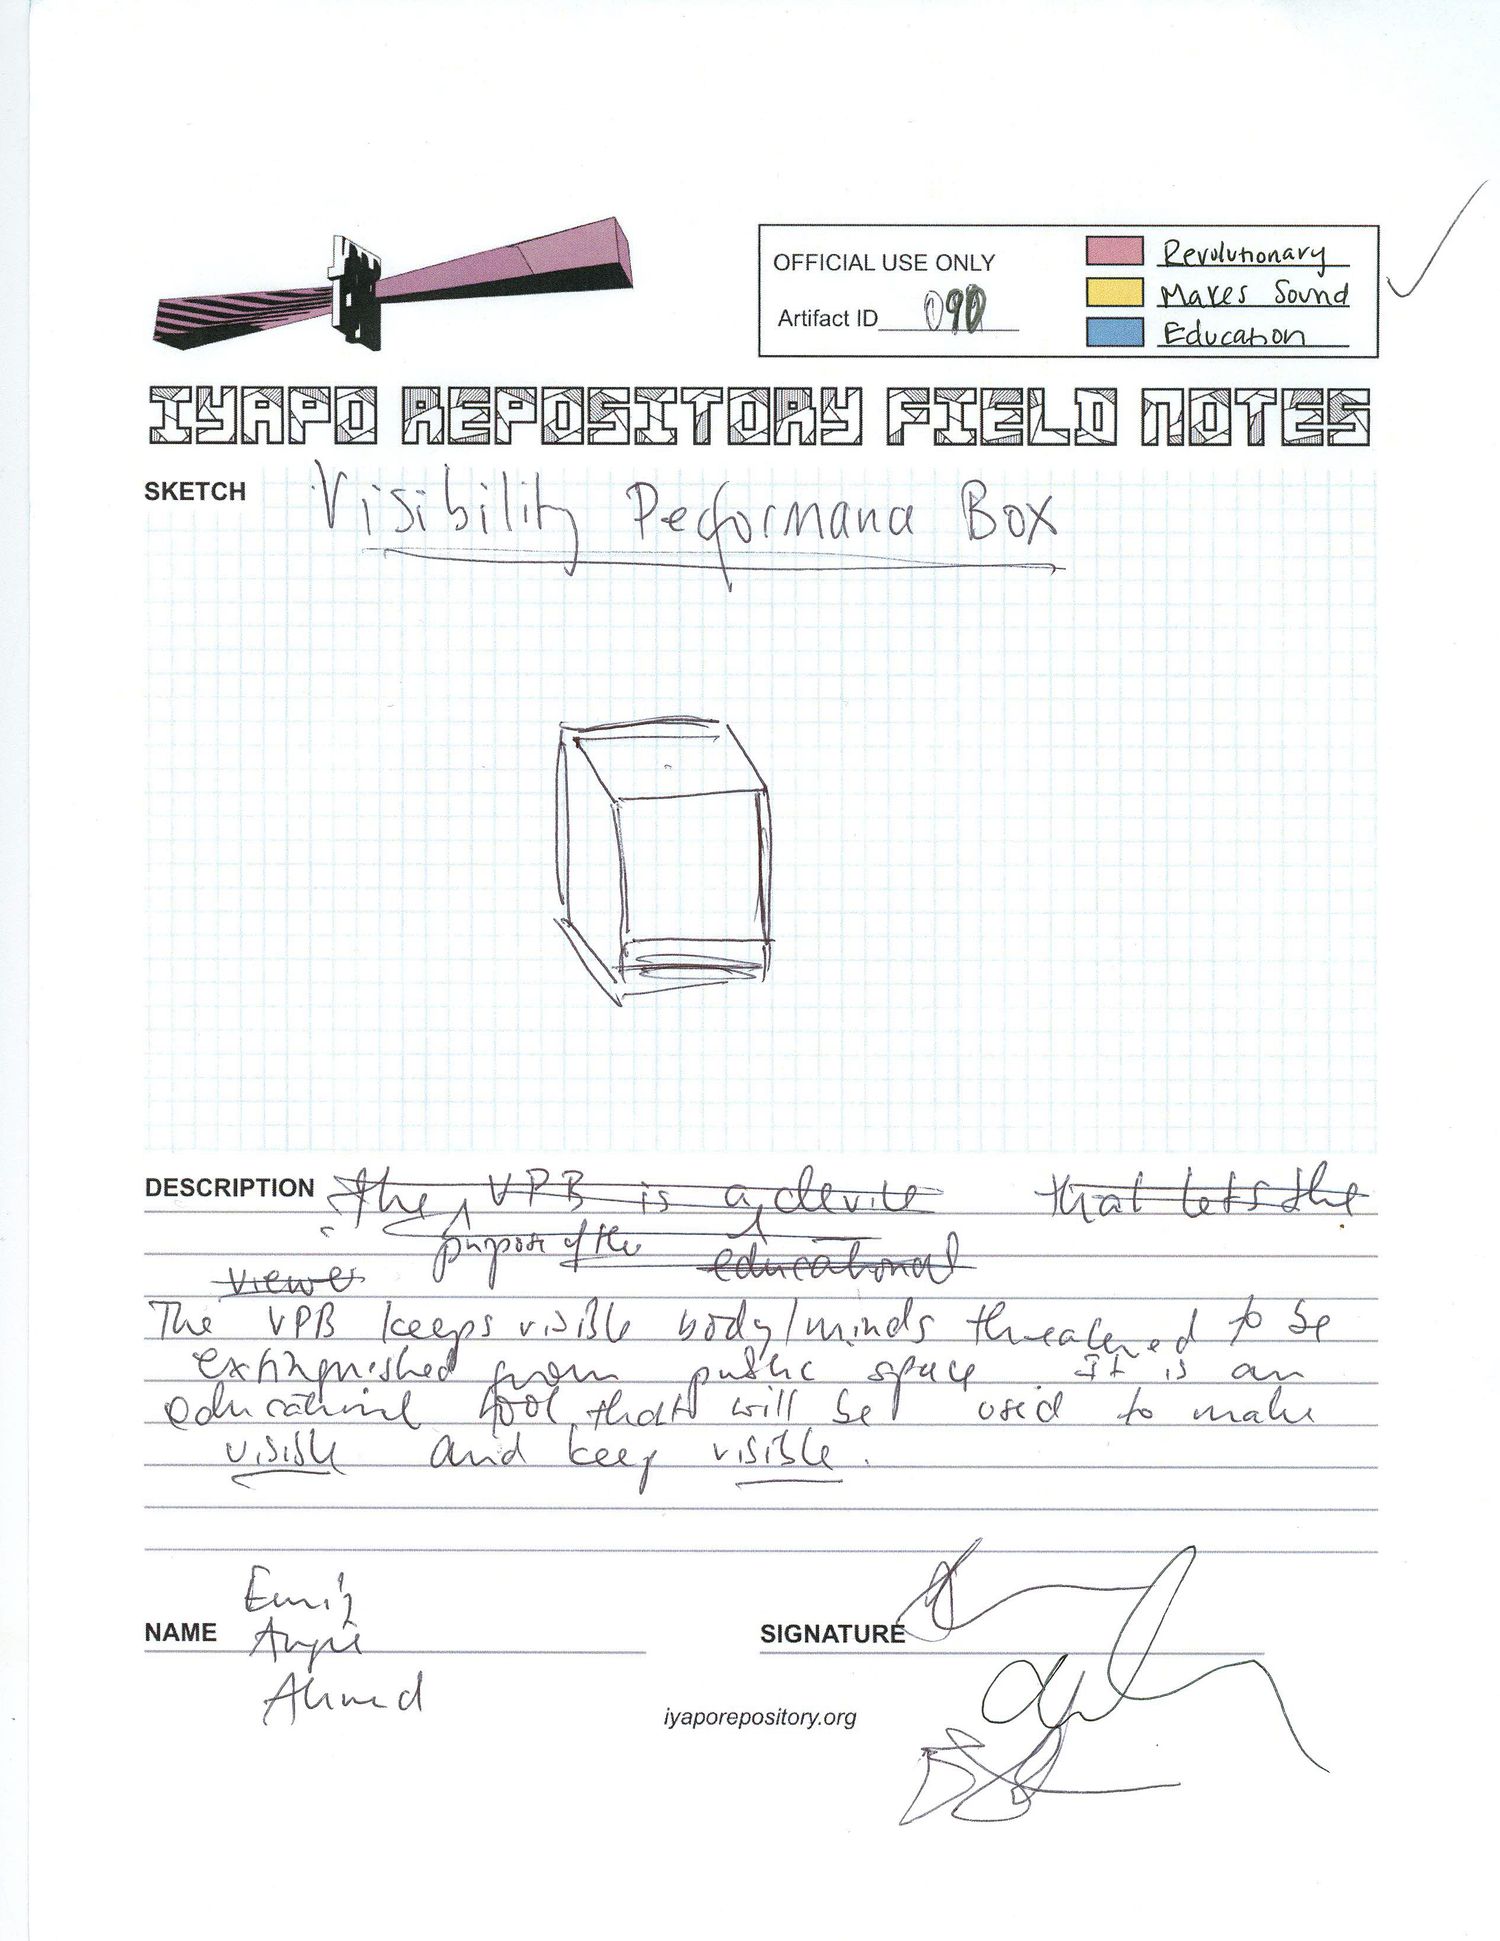 OFFICIAL USE ONLY
Artifact ID 090
Revolutionary
Makes Sound
Education
IYAPO REPOSITORY FIELD NOTES
SKETCH
Visibility Performance Box
DESCRIPTION The VPB is a device that lets the
purpose of the
viewer educational
The VPB keeps visible body/minds threatened to be
extinguished from public space It is an
educational tool that will be used to make
visible and keep visible.
Emily
NAME Angie
SIGNATURE
Ahmed
iyaporepository.org